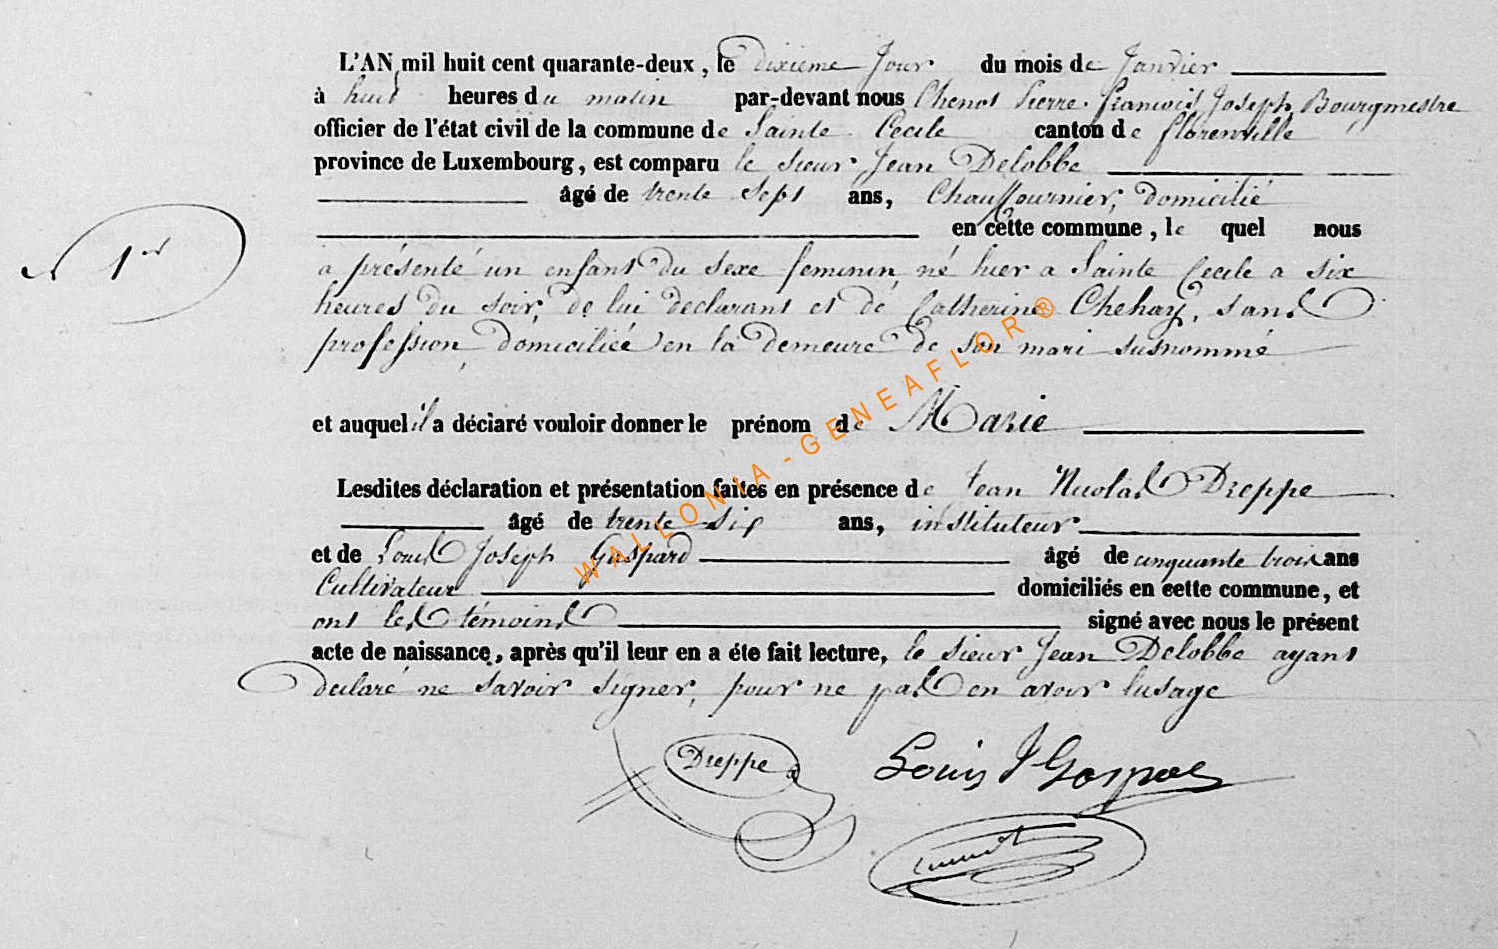 L'AN mil huit cent quarante-deux, le dixieme Jour du mois de Janvier
à huit heures du matin par-devant nous Chenot Pierre François Joseph Bourgmestre
officier de l'état civil de la commune de Sainte Cecile canton de florenville
province de Luxembourg, est comparu le sieur Jean Delobbe
âgé de trente sept ans, Chauffournier, domicilié
en cette commune, le quel nous
1er
a présenté un enfant du sexe feminin, né hier a Sainte Cecile a six
heures du soir, de lui declarant et de Catherine Chehay, sans
profession, domiciliée en la demeure de son mari susnommé
et auquel il a déclaré vouloir donner le prénom de Marie
Lesdites déclaration et présentation faites en présence de Jean Nicolas Dreppe
âgé de trente six ans, instituteur
et de Louis Joseph Gaspard âgé de cinquante trois ans
Cultivateur domiciliés en cette commune, et
ont les témoins signé avec nous le présent
acte de naissance, après qu'il leur en a éte fait lecture, le sieur Jean Delobbe ayant
declaré ne savoir signer, pour ne pas en avoir lusage
Dreppe Louis J Gaspard
WALLONIA - GENEAFLOR ®